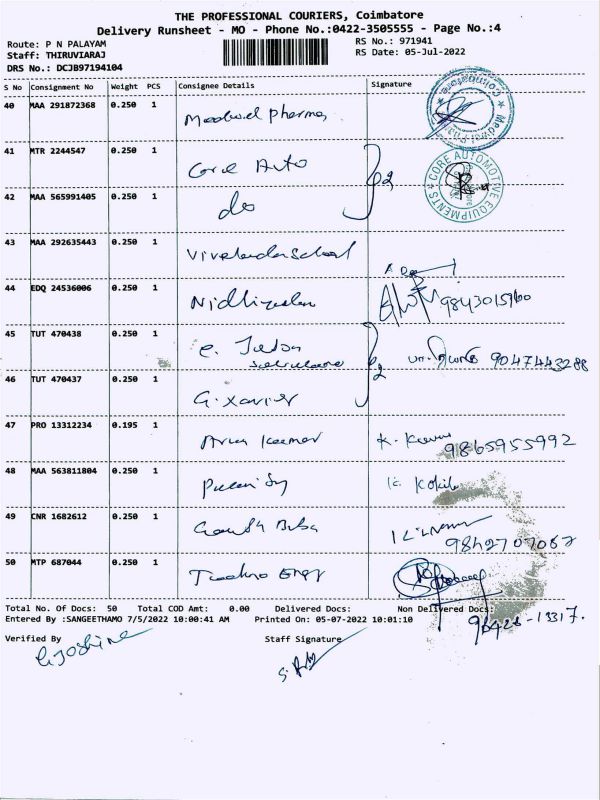 THE PROFESSIONAL COURIERS, Coimbatore
Delivery Runsheet - MO - Phone No.:0422-3505555 - Page No.:4
Route: P N PALAYAM
RS No.: 971941
Staff: THIRUVIARAJ
RS Date: 05-Jul-2022
DRS No.: DCJB97194104
S No Consignment No Weight PCS Consignee Details Signature
40 MAA 291872368 0.250 1 Medwel Pharma
41 MTR 2244547 0.250 1 Core Auto
CORE AUTOMOTIVE EQUIPMENTS
42 MAA 565991405 0.250 1 do
43 MAA 292635443 0.250 1
44 EDQ 24536006 0.250 1 9843015960
45 TUT 470438 0.250 1 9047443288
46 TUT 470437 0.250 1 G. Xavier
47 PRO 13312234 0.195 1 Arun Kumar K. Kumar
9865955992
48 MAA 563811804 0.250 1 K. Kokila
49 CNR 1682612 0.250 1
9842707062
50 MTP 687044 0.250 1
Total No. Of Docs: 50 Total COD Amt: 0.00 Delivered Docs: Non Delivered Docs:
Entered By :SANGEETHAMO 7/5/2022 10:00:41 AM Printed On: 05-07-2022 10:01:10
98428-13317.
Verified By Staff Signature